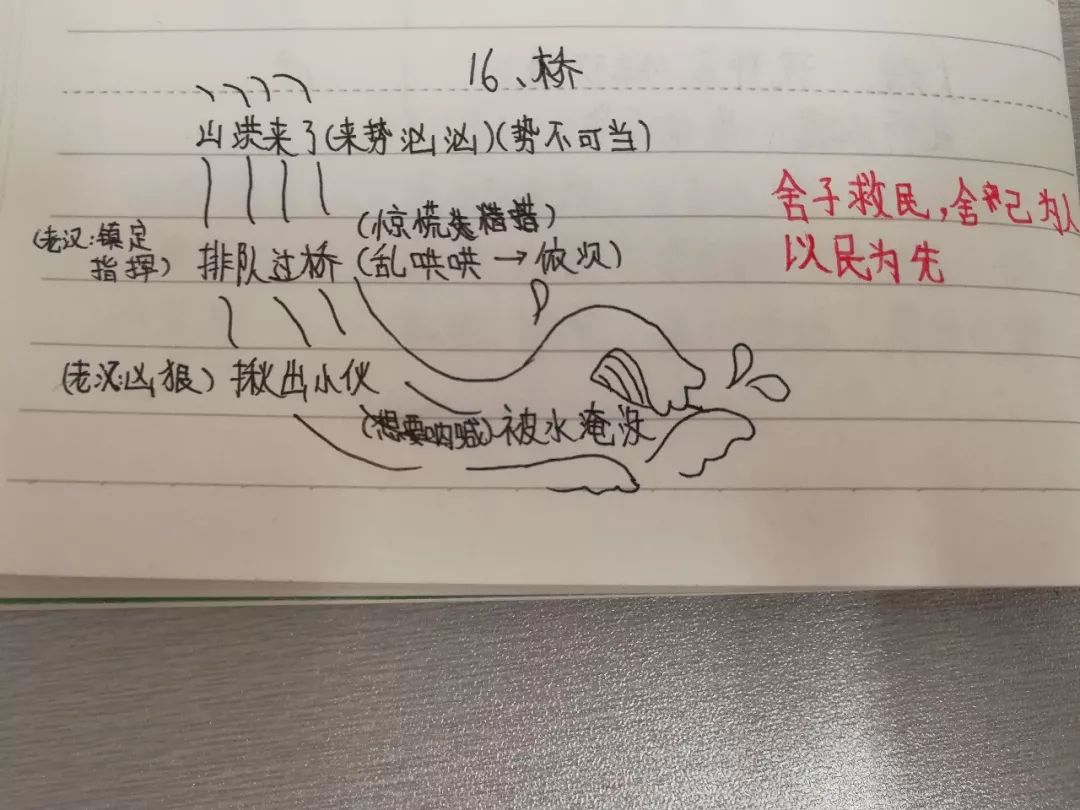 16、桥
山洪来了(来势汹汹)(势不可当)
舍子救民，舍己为人
以民为先
(惊慌失措)
(老汉:镇定指挥) 排队过桥 (乱哄哄→依次)
(老汉:凶狠) 揪出小伙
(想要呐喊) 被水淹没